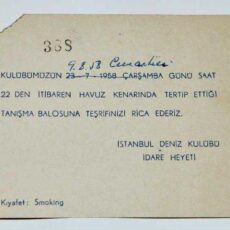 38S
9.8.58 Cumartesi
KULÜBÜMÜZÜN 23-7-1958 ÇARŞAMBA GÜNÜ SAAT
22 DEN İTİBAREN HAVUZ KENARINDA TERTİP ETTİĞİ
TANIŞMA BALOSUNA TEŞRİFİNİZİ RİCA EDERİZ.
İSTANBUL DENİZ KULÜBÜ
İDARE HEYETİ
Kıyafet: Smoking